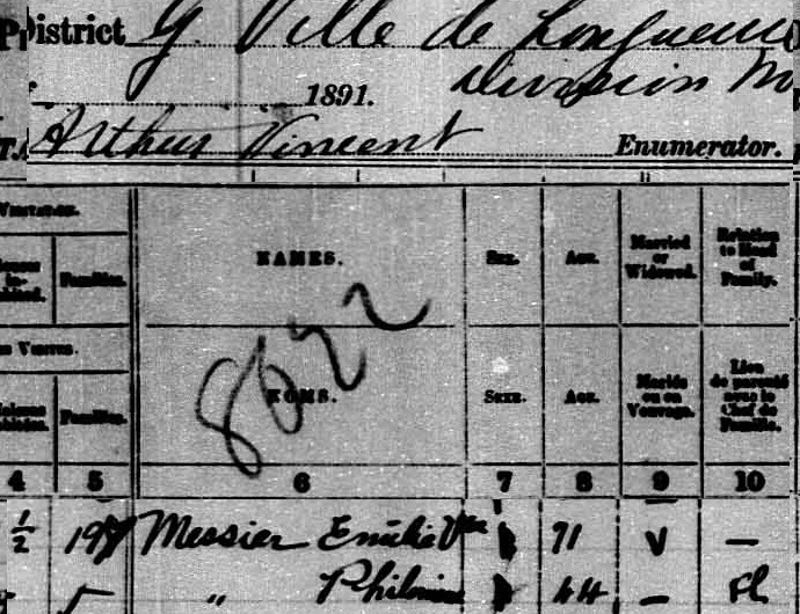 District G. Ville de Longueuil
1891. Division No
Arthur Vincent Enumerator.
NAMES. SEX. AGE. Married or Widowed. Relation to Head of Family.
Families.
8022
NOMS. SEXE. AGE. Mariés ou en Veuvage. Lien de parenté avec le Chef de Famille.
Familles.
4 5 6 7 8 9 10
½ 197 Messier Emilie Vve 71 V —
" Philomène 44 — Fl